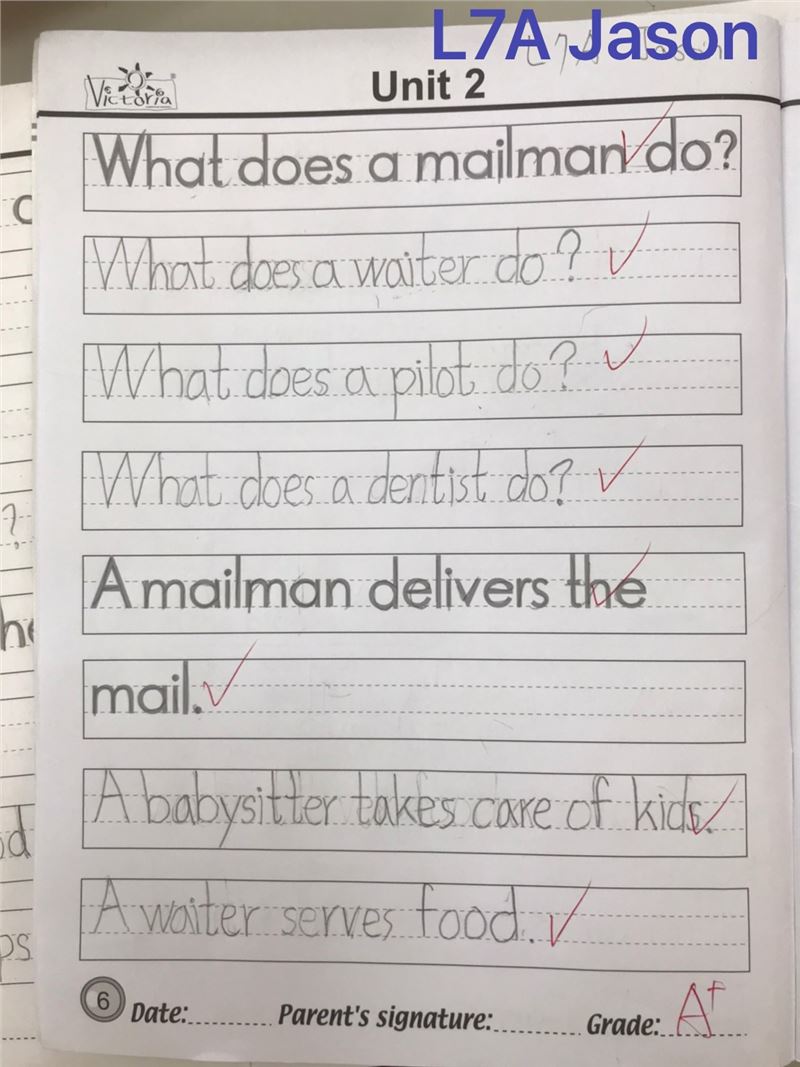 L7A Jason
L7A Jason
Victoria
Unit 2
What does a mailman do?
What does a waiter do?
What does a pilot do?
What does a dentist do?
A mailman delivers the
mail.
A babysitter takes care of kids.
A waiter serves food.
6 Date: Parent's signature: Grade: A+
?
he
ps